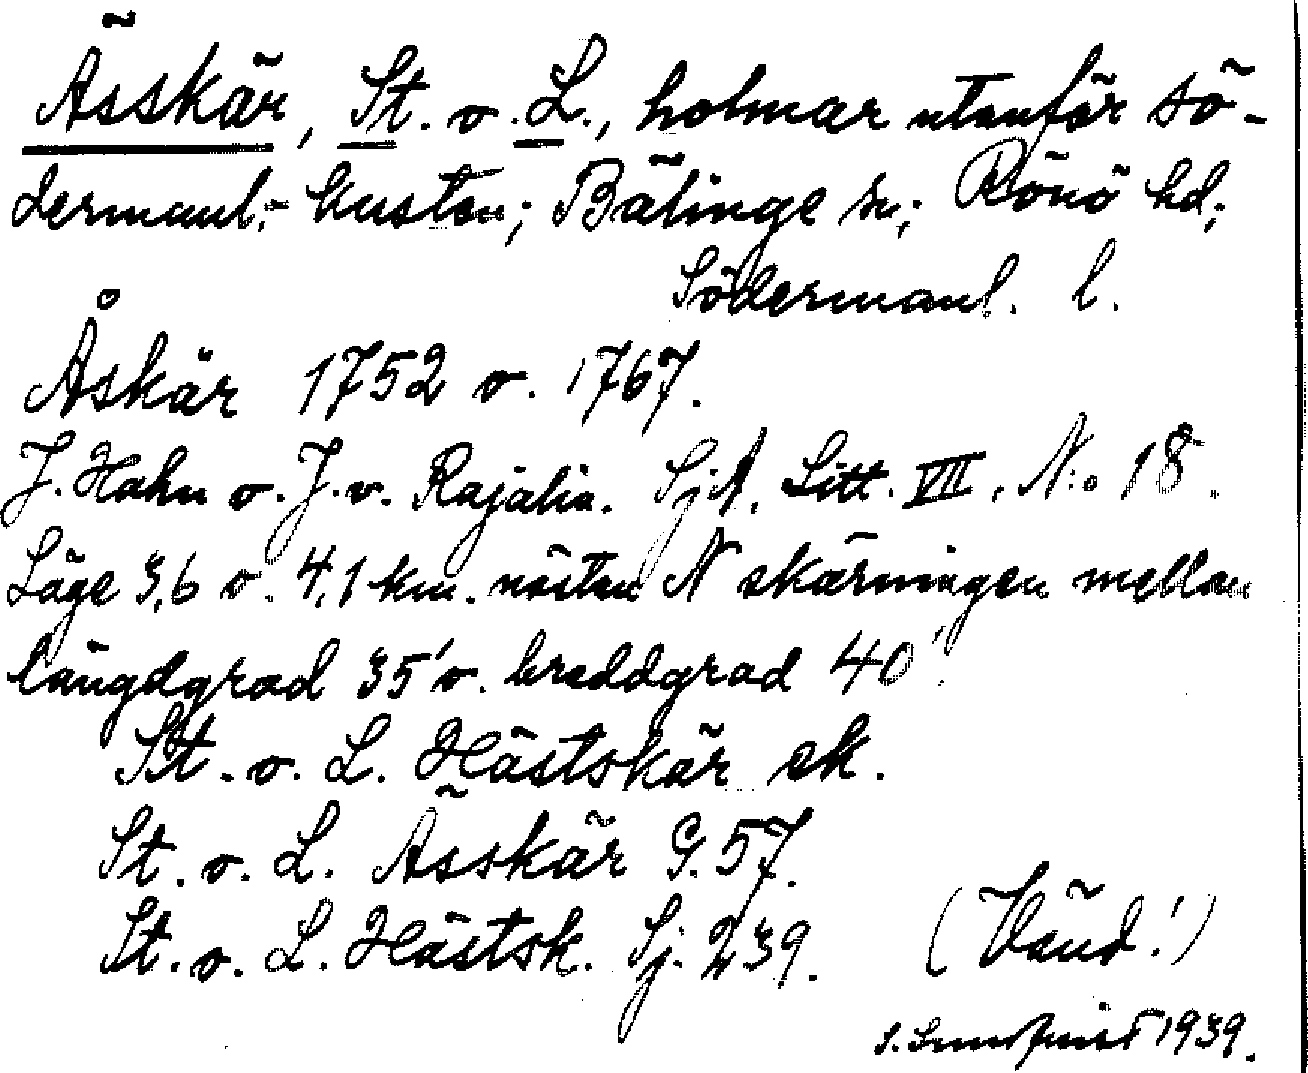 Ässkär, St. o. L., holmar utanför sö-
dermanl:-kusten; Bälinge sn; Rönö hd;
Södermanl. l.
Åskär 1752 o. 1767.
J. Hahn o. J. v. Rajalin. SjA. Litt. VII, N:o 18.
Läge 3,6 o. 4,1 km. nästan N skärningen mellan
längdgrad 35' o. breddgrad 40'.
St. o. L. Hästskär ek.
St. o. L. Ässkär G. 57.
St. o. L. Hästsk. Sj. 239. (Vänd!)
S. Lundqvist 1939.